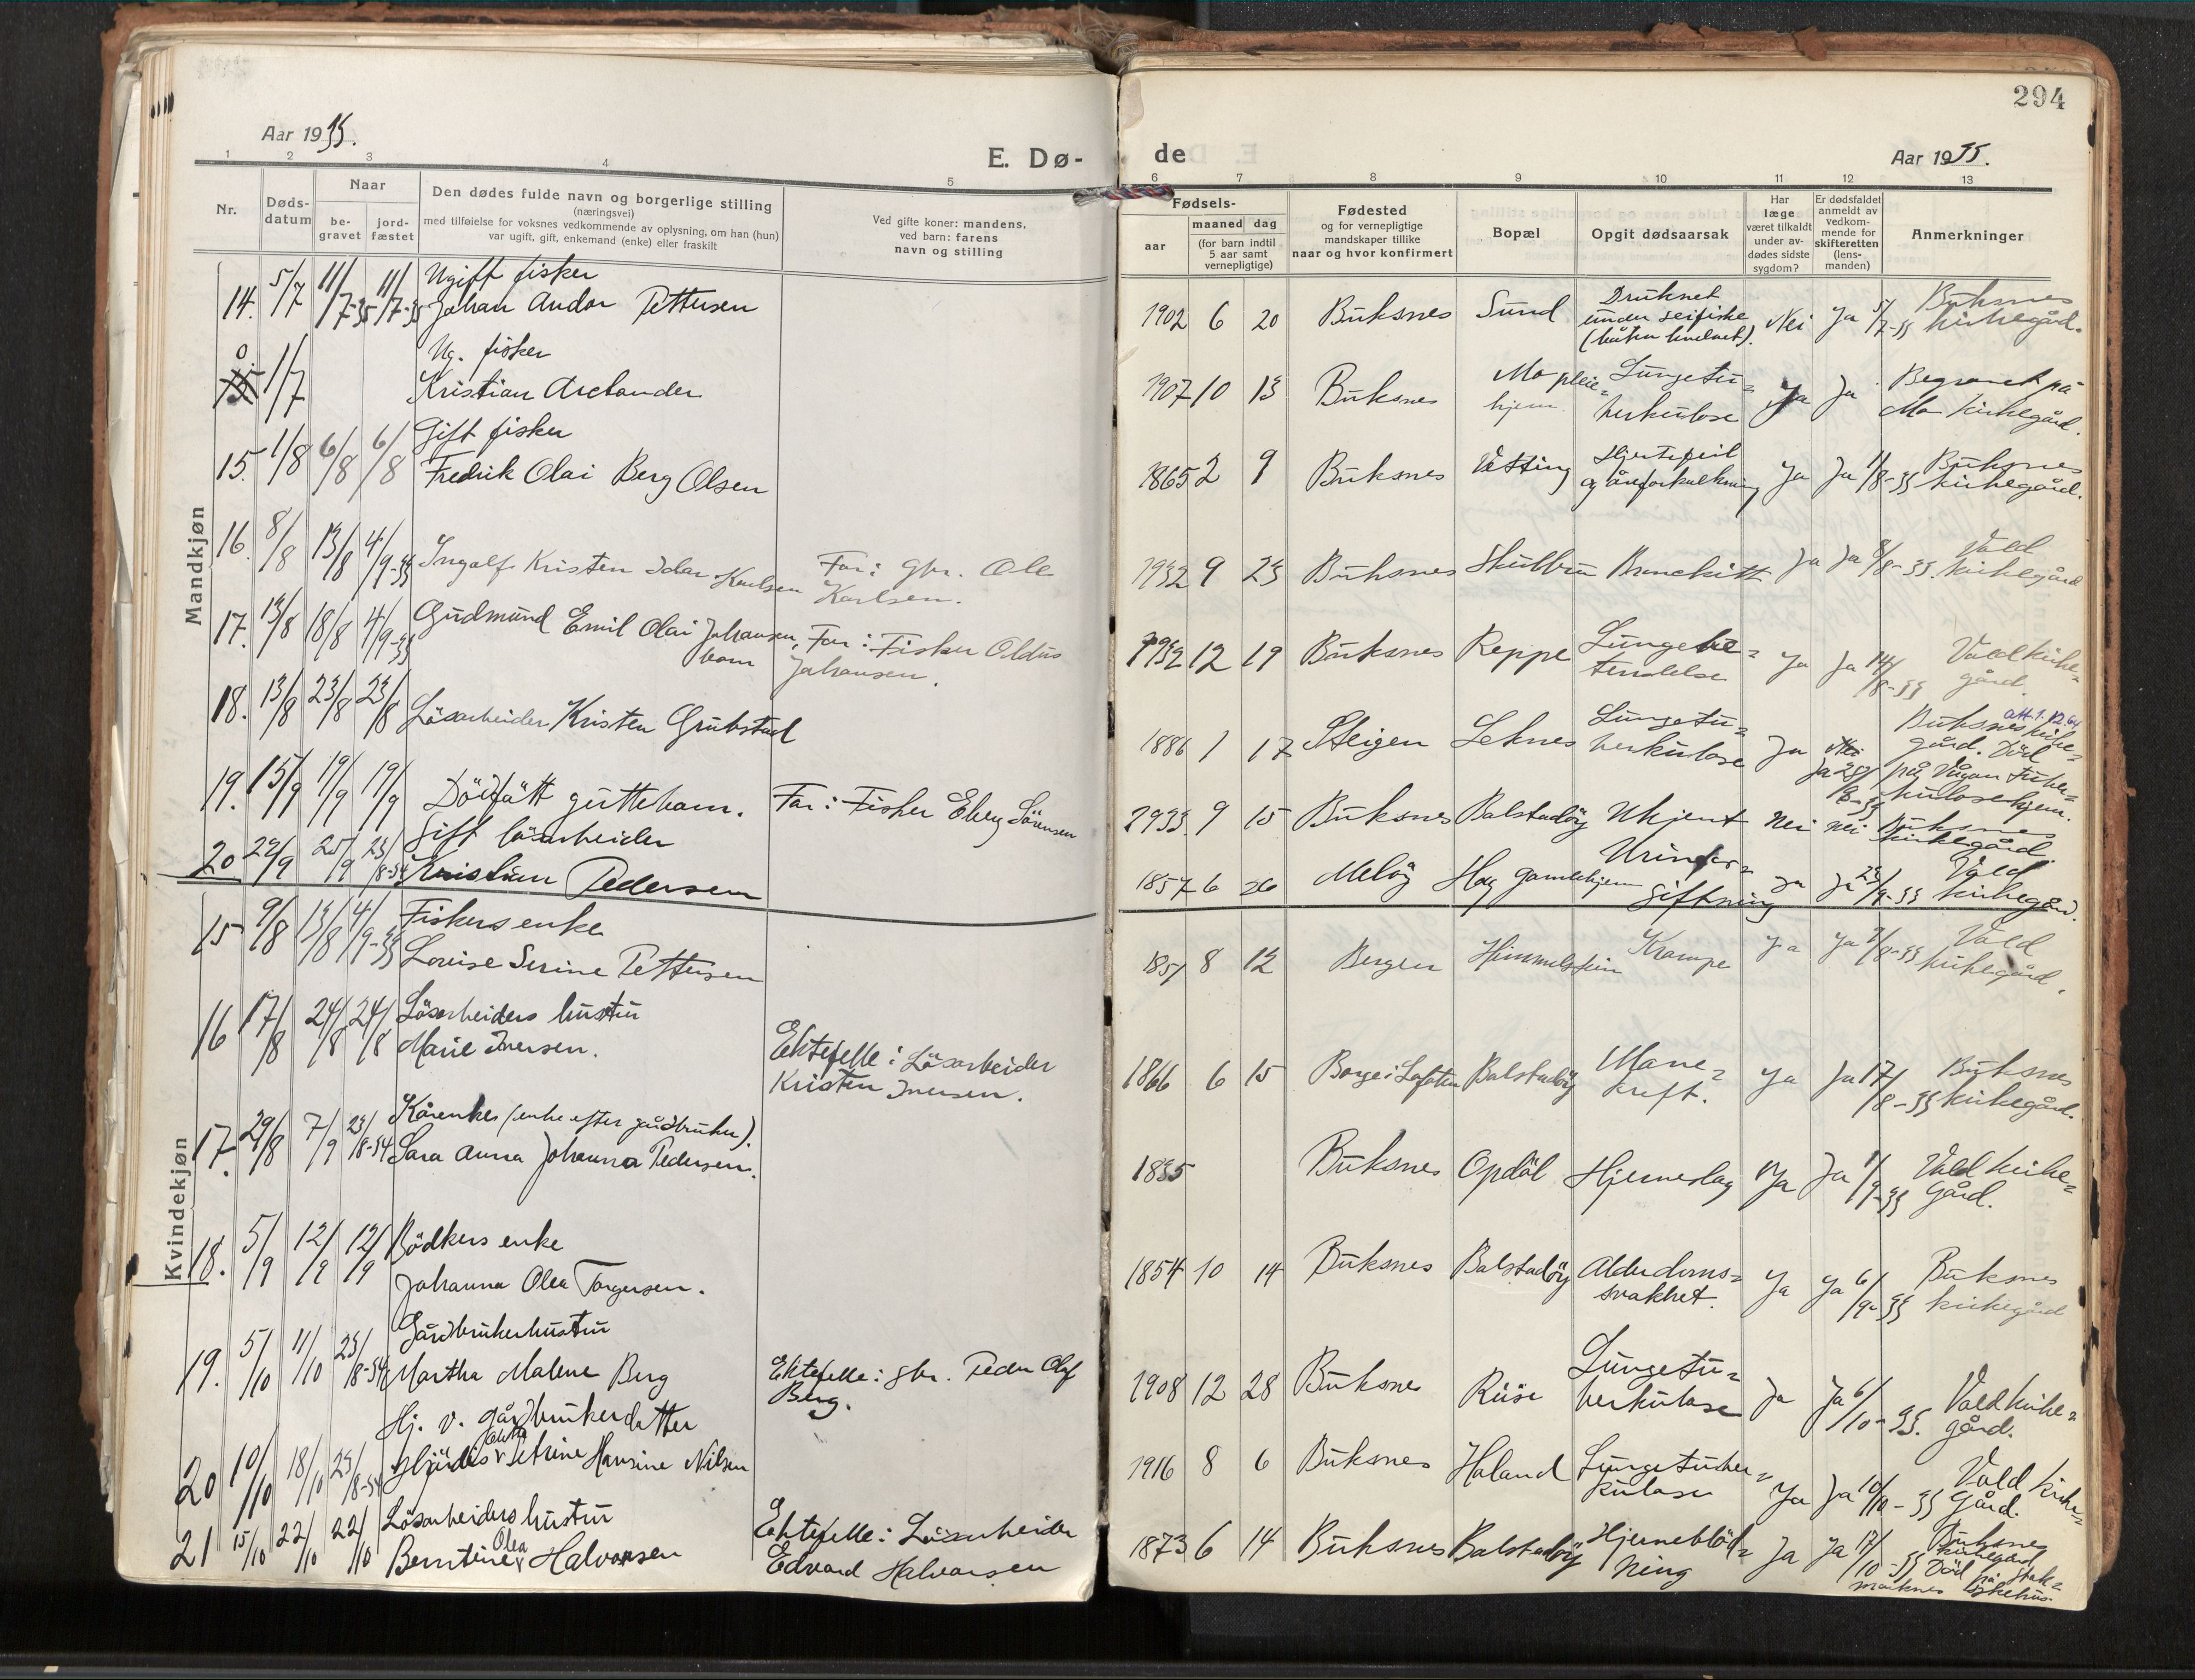 294
Aar 1933.
E. Dø-
de
Aar 1933.
1 2 3 4 5
6 7 8 9 10 11 12 13
Nr.
Døds-
datum
Naar
be-
gravet
jord-
fæstet
Den dødes fulde navn og borgerlige stilling
(næringsvei)
med tilføielse for voksnes vedkommende av oplysning, om han (hun)
var ugift, gift, enkemand (enke) eller fraskilt
Ved gifte koner: mandens,
ved barn: farens
navn og stilling
Fødsels-
aar
maaned dag
(for barn indtil
5 aar samt
vernepligtige)
Fødested
og for vernepligtige
mandskaper tillike
naar og hvor konfirmert
Bopæl
Opgit dødsaarsak
Har
læge
været tilkaldt
under av-
dødes sidste
sygdom?
Er dødsfaldet
anmeldt av
vedkom-
mende for
skifteretten
(lens-
manden)
Anmerkninger
Mandkjøn
14. 5/7 11/7-33 11/7-33 Ugift fisker
Johan Andor Pettersen
1902 6 20 Buksnes Sund Druknet
under seifiske
(båten hvelvet). Nei Ja 5/7-33 Buksnes
kirkegård.
0. 1/7 Ug. fisker
Kristian Arctander
1907 10 13 Buksnes Mo pleie=
hjem. Lungetu=
berkulose Ja Ja Begravet på
Mo kirkegård.
15. 1/8 6/8 6/8 Gift fisker
Fredrik Olai Berg Olsen
1865 2 9 Buksnes Vätting Hjertefeil
og åreforkalkning Ja Ja 1/8-33 Buksnes
kirkegård.
16. 8/8 13/8 4/9-33 Ingolf Kristen Idar Karlsen
Far: gbr. Ole
Karlsen.
1932 9 23 Buksnes Skulbru Bronckitt Ja Ja 8/8-33 Vold
kirkegård
17. 13/8 18/8 4/9-33 Gudmund Emil Olai Johansen,
barn
Far: Fisker Oldus
Johansen.
1932 12 19 Buksnes Reppe Lungebe=
tendelse Ja Ja 14/8-33 Vold kirke=
gård.
18. 13/8 23/8 23/8 Lösarbeider Kristen Grubstad
1886 1 17 Steigen Leknes Lungetu=
berkulose Ja Nei
Ja Buksnes kirke=
gård. Död
på Vågan tuber=
kulosehjem.
19. 15/9 19/9 19/9 Dödfått guttebarn.
Far: Fisker Eberg Sörensen
1933 9 15 Buksnes Balstadöy Ukjent Nei Nei Buksnes
kirkegård.
20 22/9 25/9 23/8-34 Gift lösarbeider
Kristian Pedersen
1857 6 26 Melöy Hag gamlehjem Urinfor=
giftning Ja Ja 23/9-33 Vold
kirkegård.
Kvindekjøn
15 9/8 13/8 4/9-33 Fiskers enke
Lovise Serine Pettersen
1851 8 12 Bergen Himmelstein Krampe Ja Ja 9/8-33 Vold
kirkegård.
16 17/8 24/8 24/8 Lösarbeiders hustru
Marie Iversen.
Ektefelle: Lösarbeider
Kristen Iversen.
1866 6 15 Borge i Lofoten Balstadöy Mave=
kreft. Ja Ja 17/8-33 Buksnes
kirkegård.
17. 29/8 7/9 23/8-34 Kårenke (enke efter gårdbruker).
Sara Anna Johanna Pedersen.
1835 Buksnes Opdöl Hjerneslag Ja Ja 1/9-33 Vold kirke=
gård.
18. 5/9 12/9 12/9 Bödkers enke
Johanna Olea Torgersen.
1854 10 14 Buksnes Balstadöy Alderdoms=
svakhet. Ja Ja 6/9-33 Buksnes
kirkegård
19. 5/10 11/10 23/8-34 Gårdbrukerhustru
Martha Malene Berg
Ektefelle: gbr. Peder Olaf
Berg.
1908 12 28 Buksnes Rise Lungetu=
berkulose Ja Ja 6/10-33. Vold kirke=
gård.
20 10/10 18/10 23/8-34 Hj. v. gårdbrukerdatter
Hjördis Petrine Hansine Nilsen
1916 8 6 Buksnes Haland Lungetuber=
kulose Ja Ja 10/10-33 Vold kirke=
gård.
21 15/10 22/10 22/10 Lösarbeiders hustru
Berntine Olea Halvorsen
Ektefelle: Lösarbeider
Edvard Halvorsen
1873 6 14 Buksnes Balstadöy Hjerneblöd=
ning Ja Ja 17/10-33 Buksnes
kirkegård
Död på Stok=
marknes sykehus.